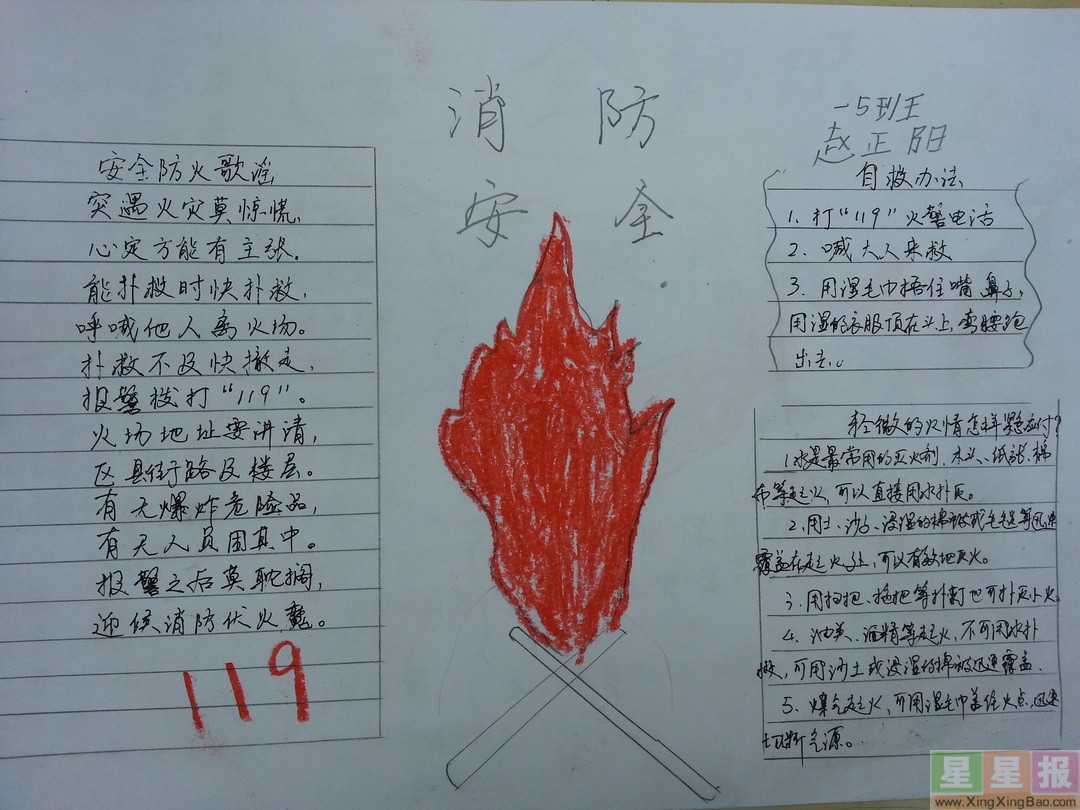 消 防
安 全
一5班王
赵正阳
安全防火歌谣
突遇火灾莫惊慌,
心定方能有主张.
能扑救时快扑救,
呼喊他人离火场。
扑救不及快撤走,
报警拨打“119”。
火场地址要讲清,
区县街路及楼层。
有无爆炸危险品,
有无人员困其中。
报警之后莫耽搁,
迎候消防伏火魔。
119
自救办法
1. 打“119”火警电话
2. 喊大人来救
3. 用湿毛巾捂住嘴、鼻子,
用湿的衣服顶在头上,弯腰跑
出去。
轻微的火情怎样紧应付?
1水是最常用的灭火剂,木头、纸张、棉
布等起火,可以直接用水扑灭。
2.用土、沙子、浸湿的棉被或毛毯等迅速
覆盖在起火上,可以有效地灭火。
3.用扫把、拖把等扑打也可扑灭小火
4. 油类、酒精等起火,不可用水扑
救,可用沙土或浸湿的棉被迅速覆盖.
5. 煤气起火,可用湿毛巾盖住火点,迅速
切断气源。
星星报
www.XingXingBao.com